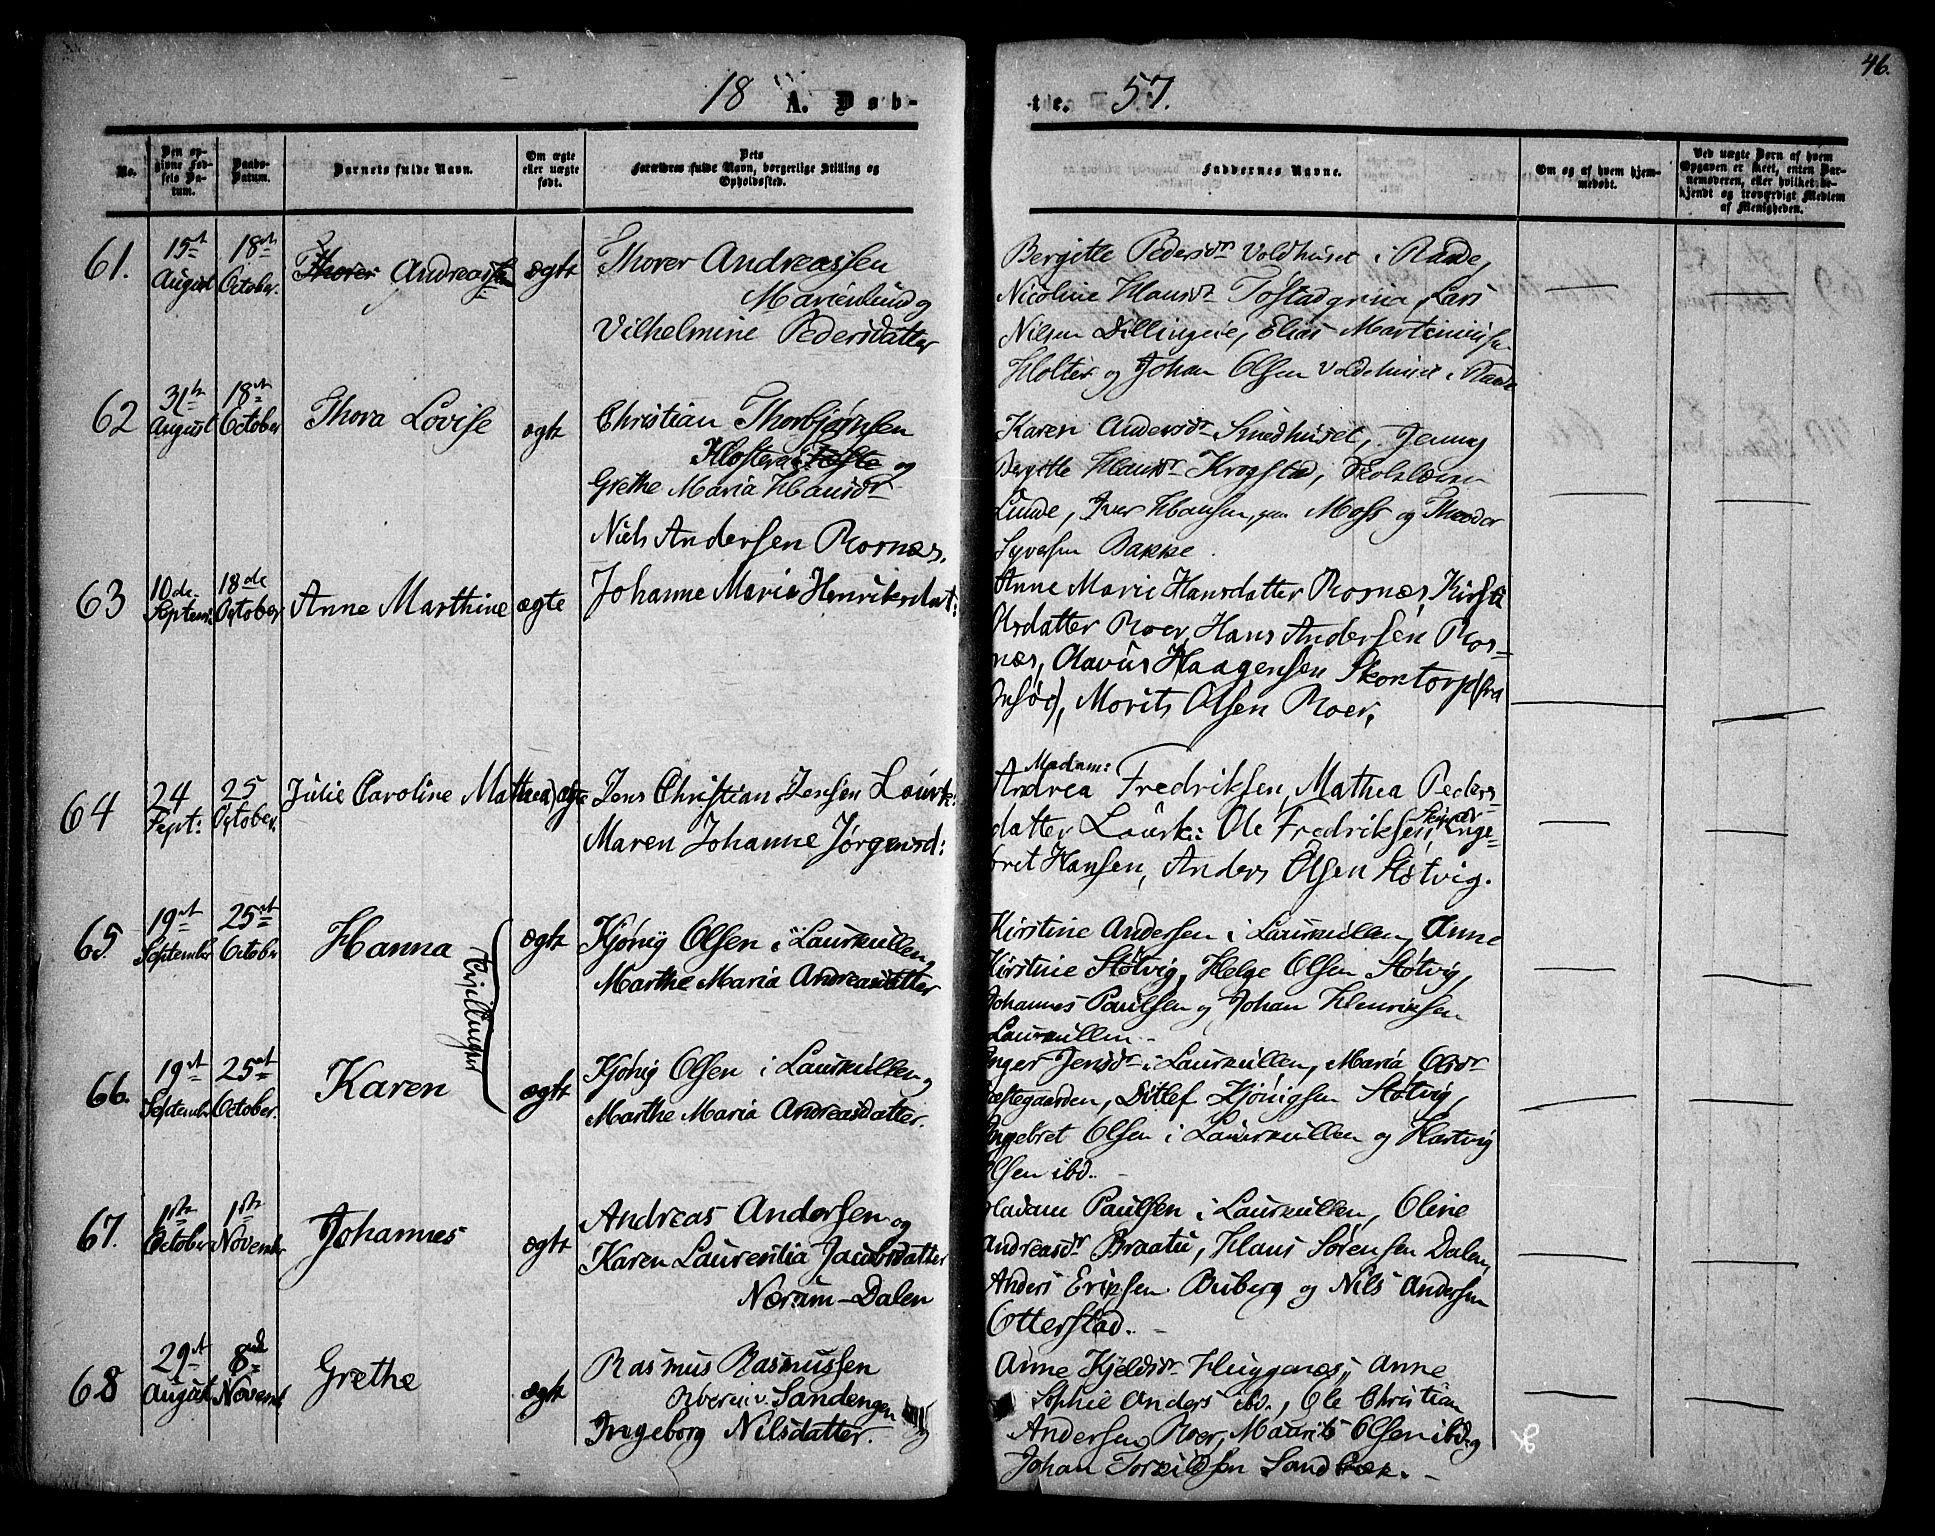 46.
18 A. Døb-
te. 57.
No.
Den op-
givne Fød-
sels Da-
tum.
Daabs-
Datum.
Barnets fulde Navn.
Om ægte
eller uægte
født.
Dets
Forældres fulde Navn, borgerlige Stilling og
Opholdssted.
Faddernes Navne.
Om og af hvem hjem-
medøbt.
Ved uægte Børn af hvem
Opgaven er skeet, enten Bar-
nemoderen, eller hvilket be-
kjendt og troværdigt Medlem
af Menigheden.
61.
15
August
18
October.
Thorer Andreas
ægte
Thorer Andreassen
Marienlund og
Vilhelmine Pedersdatter
Bergitte Pedersdr Voldhuset i Raade,
Nicoline Hansdr Tofstad, Lars
Nilsen Dillingeie, Elias Martiniussen
Holter og Johan Olsen Voldehuset i Raade
62
31
August
18
October
Thora Lovise
ægte
Christian Thorbjørnsen
Kloster og
Grethe Maria Hansdr
Karen Andersdr Smedhuset, Jenny
Bergitte Hansdr Krogstad,
Lunde, Iver Hansen, Moss og Theodor
Syvesen Bakke.
63
10de
Septemr.
18de
October
Anne Marthine
ægte
Niels Andersen Rosnæs,
Johanne Maria Henriksdat:
Anne Marie Hansdatter Rosnæs, Kirsti
Olsdatter Roer, Hans Andersen Ros-
næs, Olavus Haagensen Skontorp (fra
Onsøe), Morits Olsen Roer.
64
24
Sept:
25
October.
Julie Caroline Mathea
ægte
Jens Christian Jensen Lourk:
Maren Johanne Jørgensd:
Madam:
Andrea Fredriksen, Mathea Peders-
datter Lourk: Ole Fredriksen, Inge-
bret Hansen, Anders Olsen Støtvig.
65.
19
September
25
October
Hanna
Tvillinger
ægte
Kjønig Olsen i Laurkullen og
Marthe Maria Andreasdatter
Kirstine Andersen i Laurkullen, Anne
Kirstine Støtvig, Helge Olsen Støtvig,
Johannes Paulsen og Johan Henriksen
Laurkullen.
66.
19
September
25
October.
Karen
ægte
Kjønig Olsen i Laurkullen og
Marthe Maria Andreasdatter.
Inger Jensdr i Laurkullen, Maria Olsdr
Væstegaarden, Ditlef Kjønigsen Støtvig,
Ingebret Olsen i Laurkullen og Hartvig
Olsen ibd.
67.
1
October
1
Novembr
Johannes
ægte
Andreas Andersen og
Karen Laurentia Jacobsdatter
Nærum-Dalen
Madam Paulsen i Laurkullen, Oline
Andreasdr Braatu, Hans Sørensen Dalen,
Anders Eriksen Buberg og Nils Andersen
Otterstad.
68
29
August
8
Novembr
Grethe
ægte
Rasmus Rasmussen
Sandengen
og
Ingeborg Nilsdatter.
Anne Kjeldsdr Huggenæs, Anne
Sophie Anders ibd., Ole Christian
Andersen Roer, Maurits Olsen ibd. og
Johan Torkildsen Sandbæk.